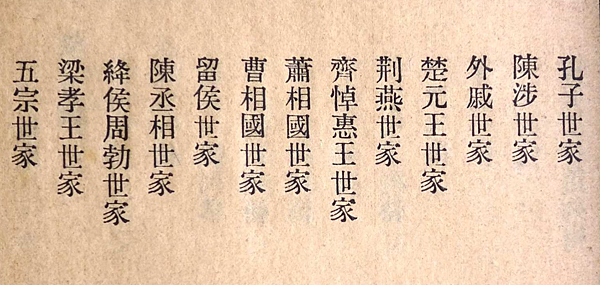 孔子世家
陳涉世家
外戚世家
楚元王世家
荆燕世家
齊悼惠王世家
蕭相國世家
曹相國世家
留侯世家
陳丞相世家
絳侯周勃世家
梁孝王世家
五宗世家